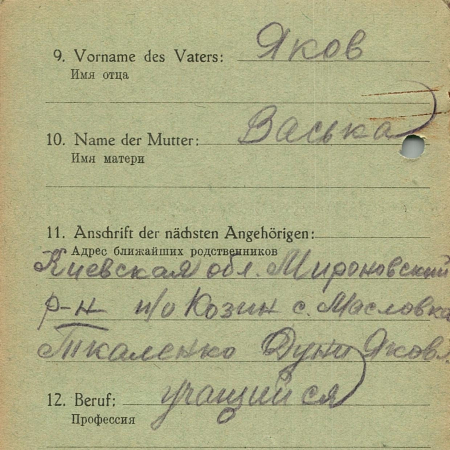 9. Vorname des Vaters: Яков
Имя отца
10. Name der Mutter: Васька
Имя матери
11. Anschrift der nächsten Angehörigen:
Адрес ближайших родственников
Киевская обл. Мироновский
р-н п/о Козин с. Масловка
Ткаленко Дуни Яковл.
12. Beruf: учащийся
Профессия